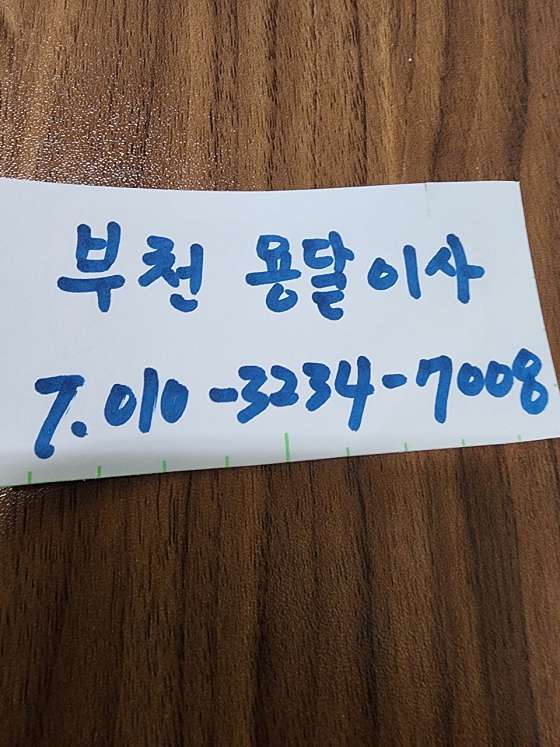 부천 용달이사
T.010-3234-7008